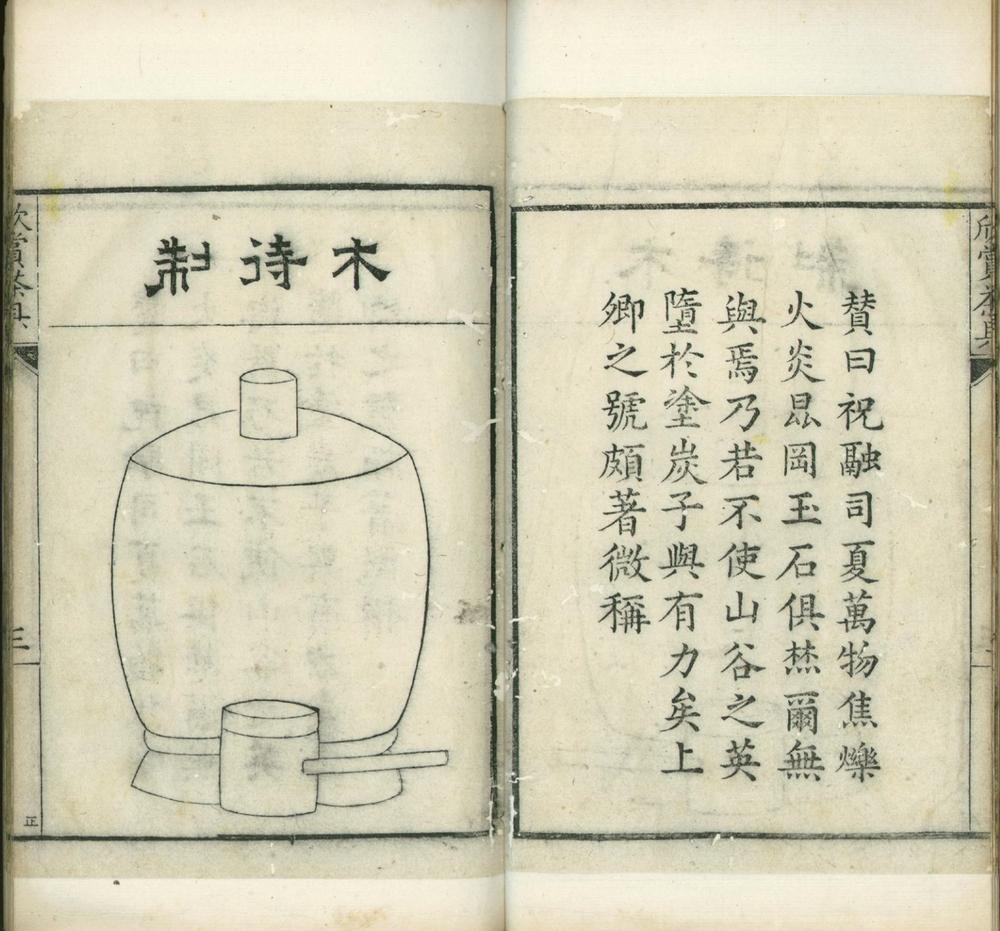 欣賞茶具
賛曰祝融司夏萬物焦爍
火炎昆岡玉石俱焚爾無
與焉乃若不使山谷之英
墮於塗炭子與有力矣上
卿之號頗著微稱
木待制
欣賞茶具
三
正